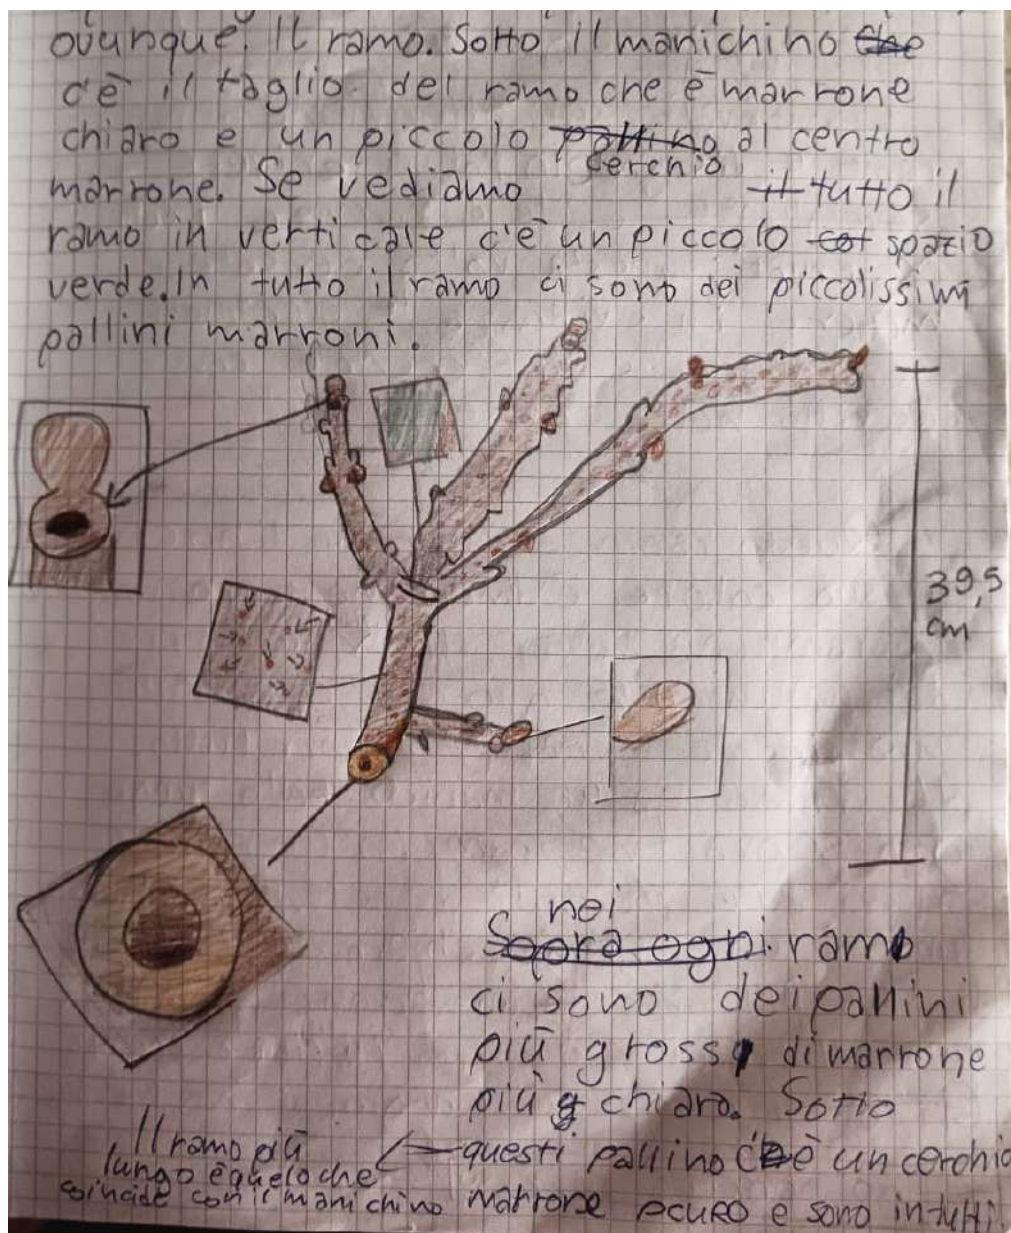 ovunque. Il ramo. Sotto il manichino che
c'è il taglio del ramo che è marrone
chiaro e un piccolo pallino al centro
cerchio
marrone. Se vediamo it tutto il
ramo in verticale c'è un piccolo cot spazio
verde. In tutto il ramo ci sono dei piccolissimi
pallini marroni.
39,5
cm
nei
Sopra ogni rami
ci sono dei pallini
più grossi di marrone
più g chiaro. Sotto
questi pallino c'è un cerchio
marrone scuro e sono in tutti.
Il ramo più
lungo è quelo che
coincide con il manichino